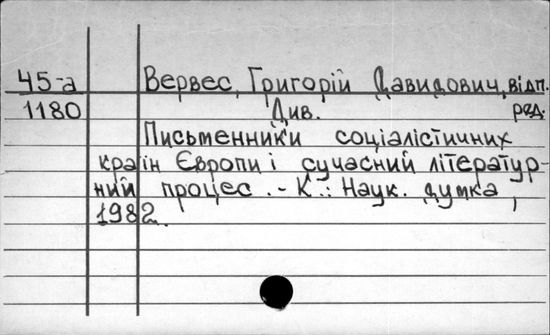 45-а Вервес, Григорій Давидович, відп.
1180 Див. ред.
Письменники соціалістичних
країн Європи і сучасний літератур-
ний процес. - К.: Наук. думка,
1982.